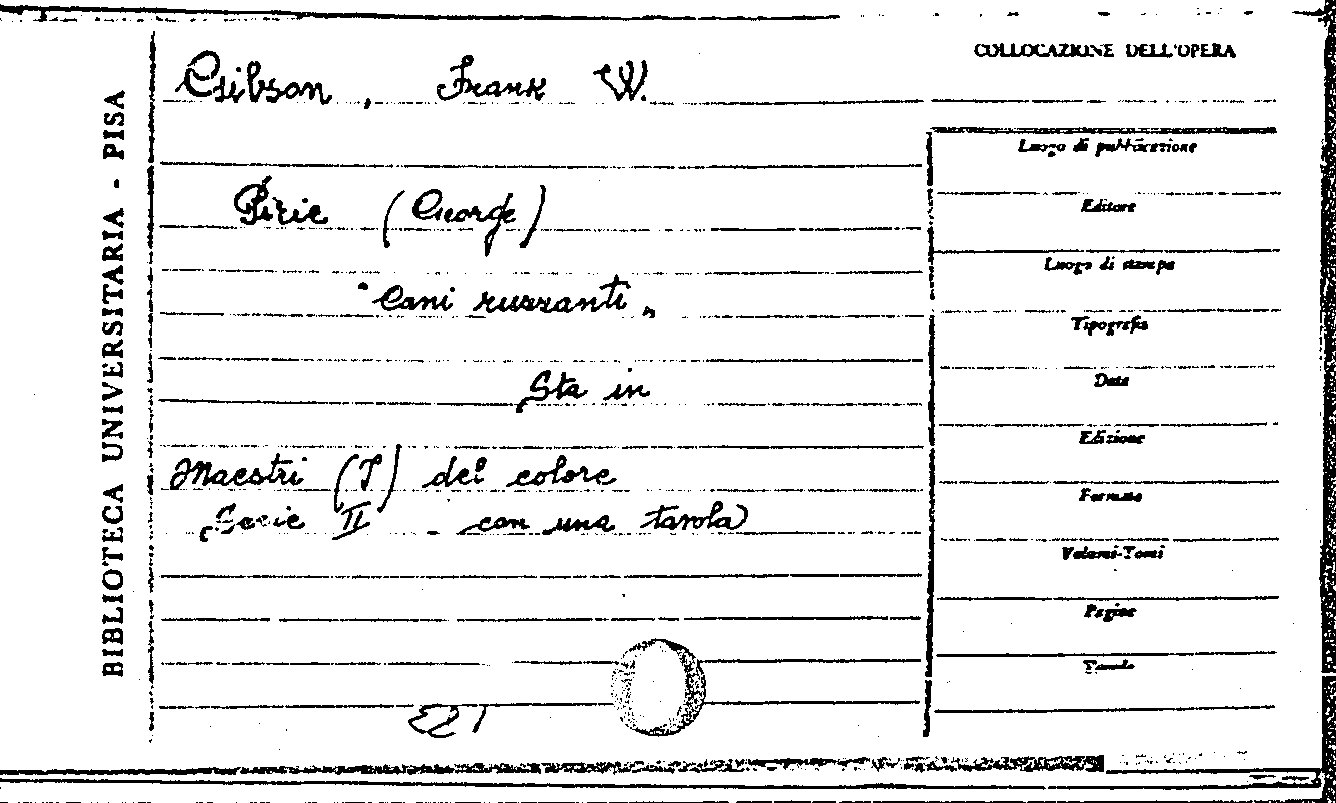 BIBLIOTECA UNIVERSITARIA - PISA
Gibson, Frank W.
Pirie (George)
"Cani ruzzanti„
Sta in
Maestri (I) del colore
Serie II - con una tavola
COLLOCAZIONE DELL'OPERA
Luogo di pubblicazione
Editore
Luogo di stampa
Tipografia
Data
Edizione
Formato
Volumi-Tomi
Pagine
Tavole